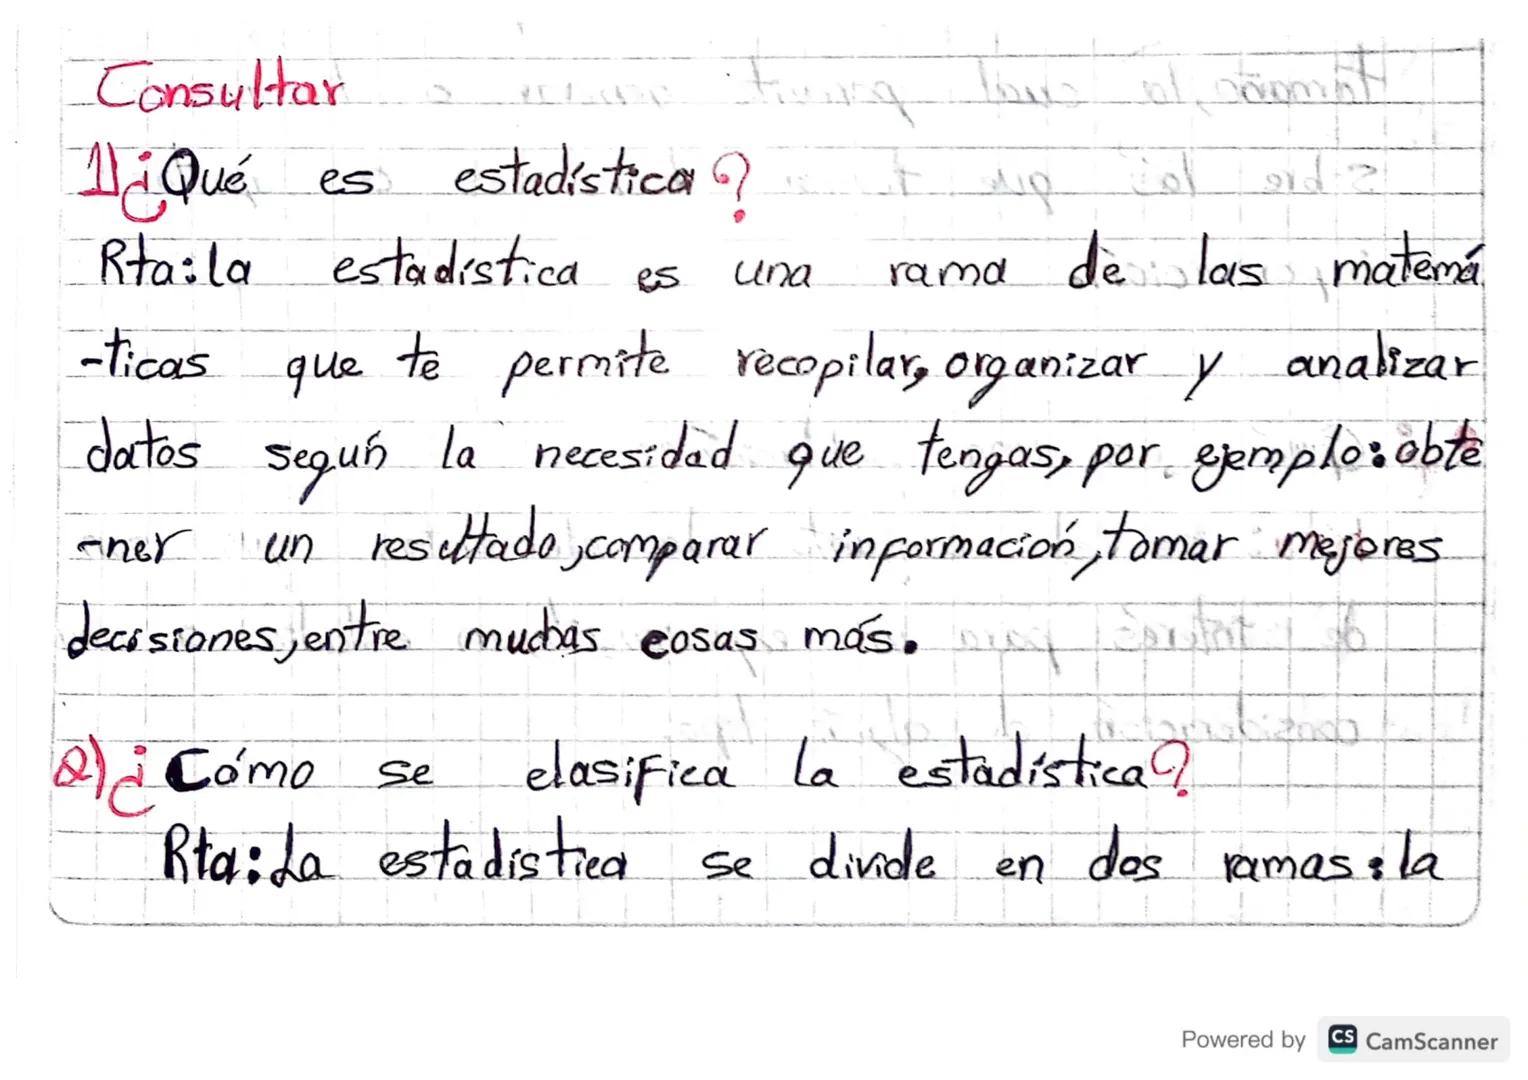 Consultar
1)¿Qué es estadística?
Rta:la estadística es una rama de las matemá
-ticas que te permite recopilar, organizar y analizar
datos según la necesidad que tengas, por ejemplo: obte
-ner un resultado, comparar información, tomar mejores
decisiones, entre muchas cosas más.
2)¿Cómo se clasifica la estadística?
Rta: La estadística se divide en dos ramas: la
Powered by CS CamScanner